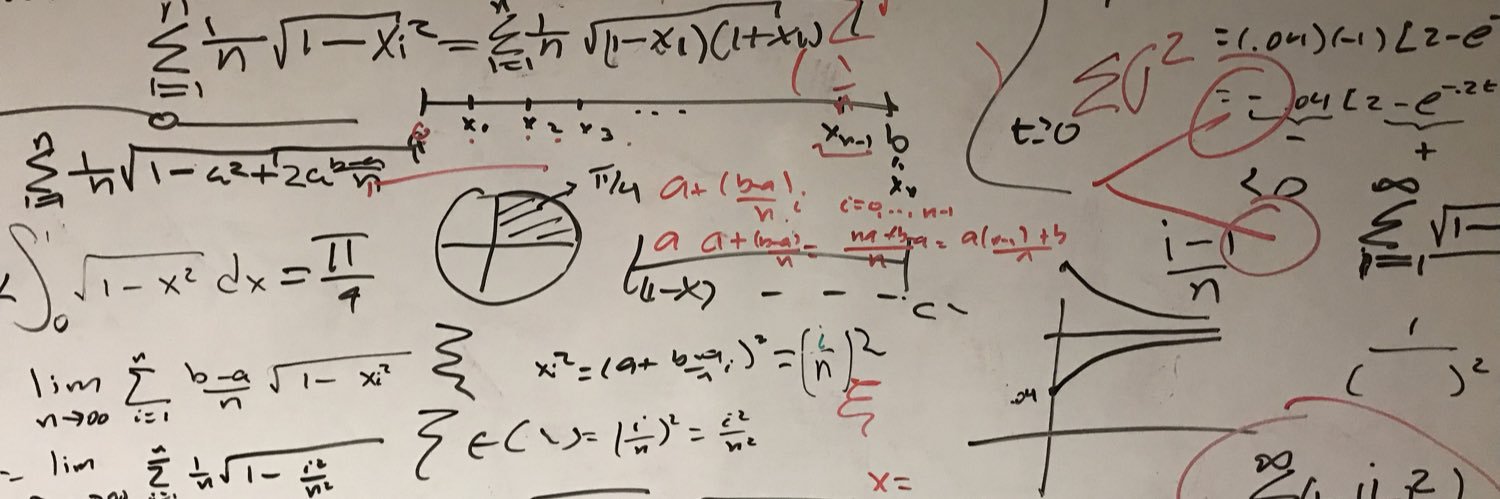 ∑_{i=1}^{n} 1/n √(1-xᵢ²) = ∑_{i=1}^{n} 1/n √((1-xᵢ)(1+xᵢ))
x₁ x₂ x₃ ... xₙ₋₁ b
xₙ
∑_{i=1}^{n} 1/n √(1-a²+2a (b-a)/n
π/4
a+(b-a)/n i i=0,...,n-1
a a+(b-a)/n = (na+b-a)/n = (a(n-1)+b)/n
∫₀¹ √(1-x²) dx = π/4
(1-x) - - -
lim_{n→∞} ∑_{i=1}^{n} (b-a)/n √(1-xᵢ²)
xᵢ² = (a+(b-a)/n i)² = (i/n)²
= lim ∑_{i=1}^{n} 1/n √(1-i²/n²)
= (i/n)² = i²/n²
x=
t≥0
∑ 2
=(.04)(-1)[2-e⁻
=-.04[2-e^{-.2t}
- +
<0
(i-1)/n
∑_{i=1}^{∞} √(1-
.04
1/( )²
∞
∑